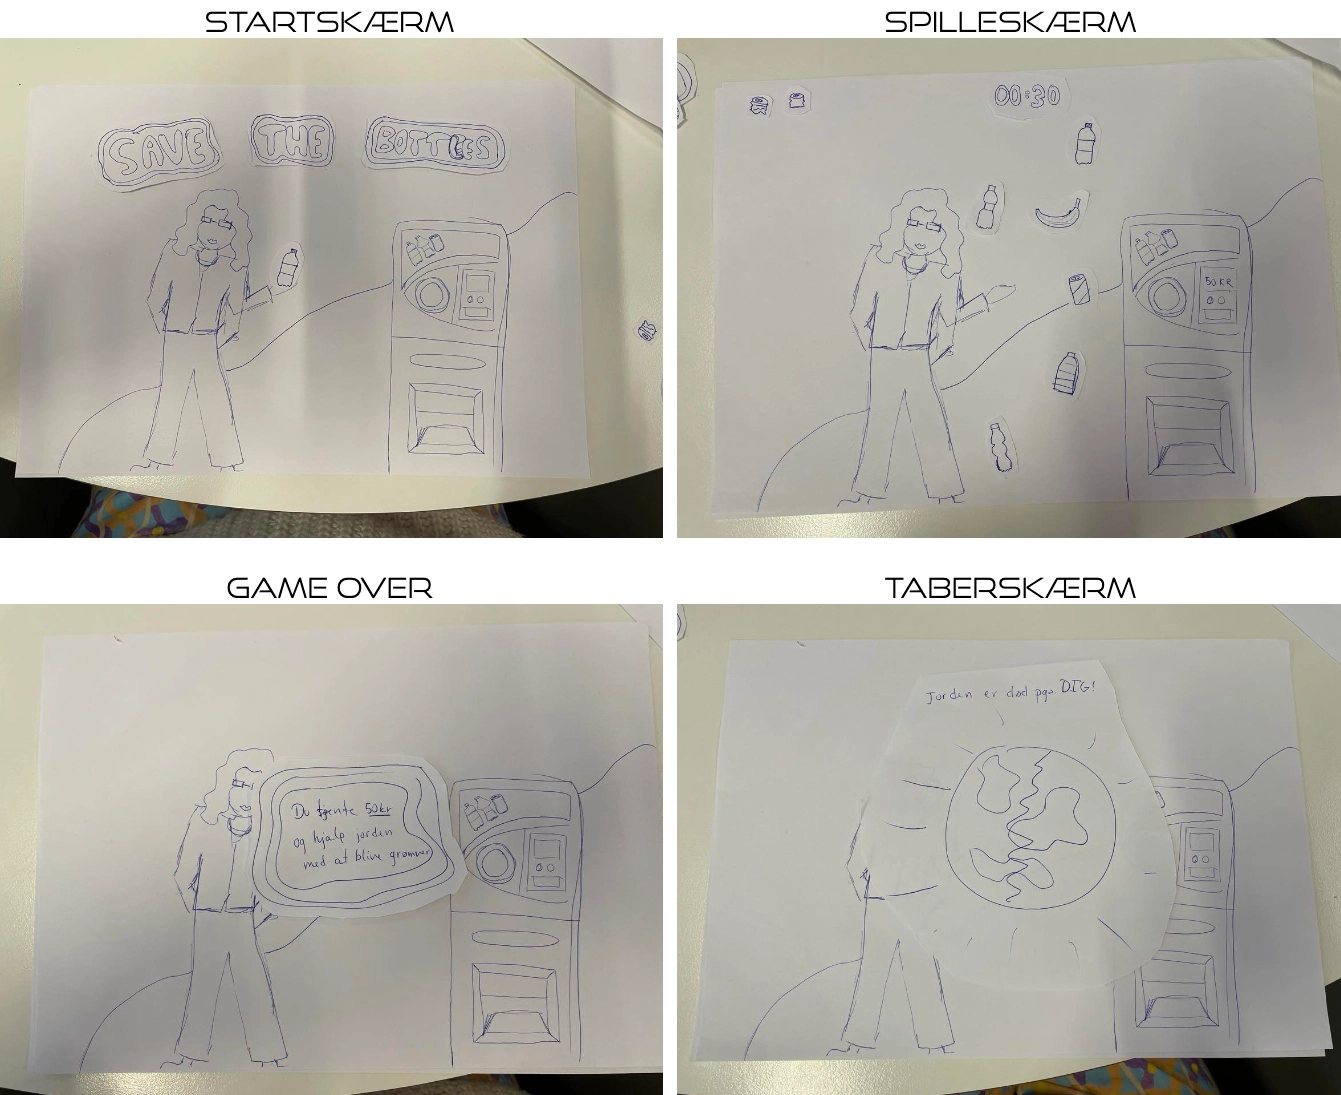 STARTSKÆRM
SAVE THE BOTTLES
SPILLESKÆRM
00:30
50 KR
GAME OVER
Du tjente 50kr
og hjalp jorden
med at blive grønner
TABERSKÆRM
Jorden er død pga DIG!